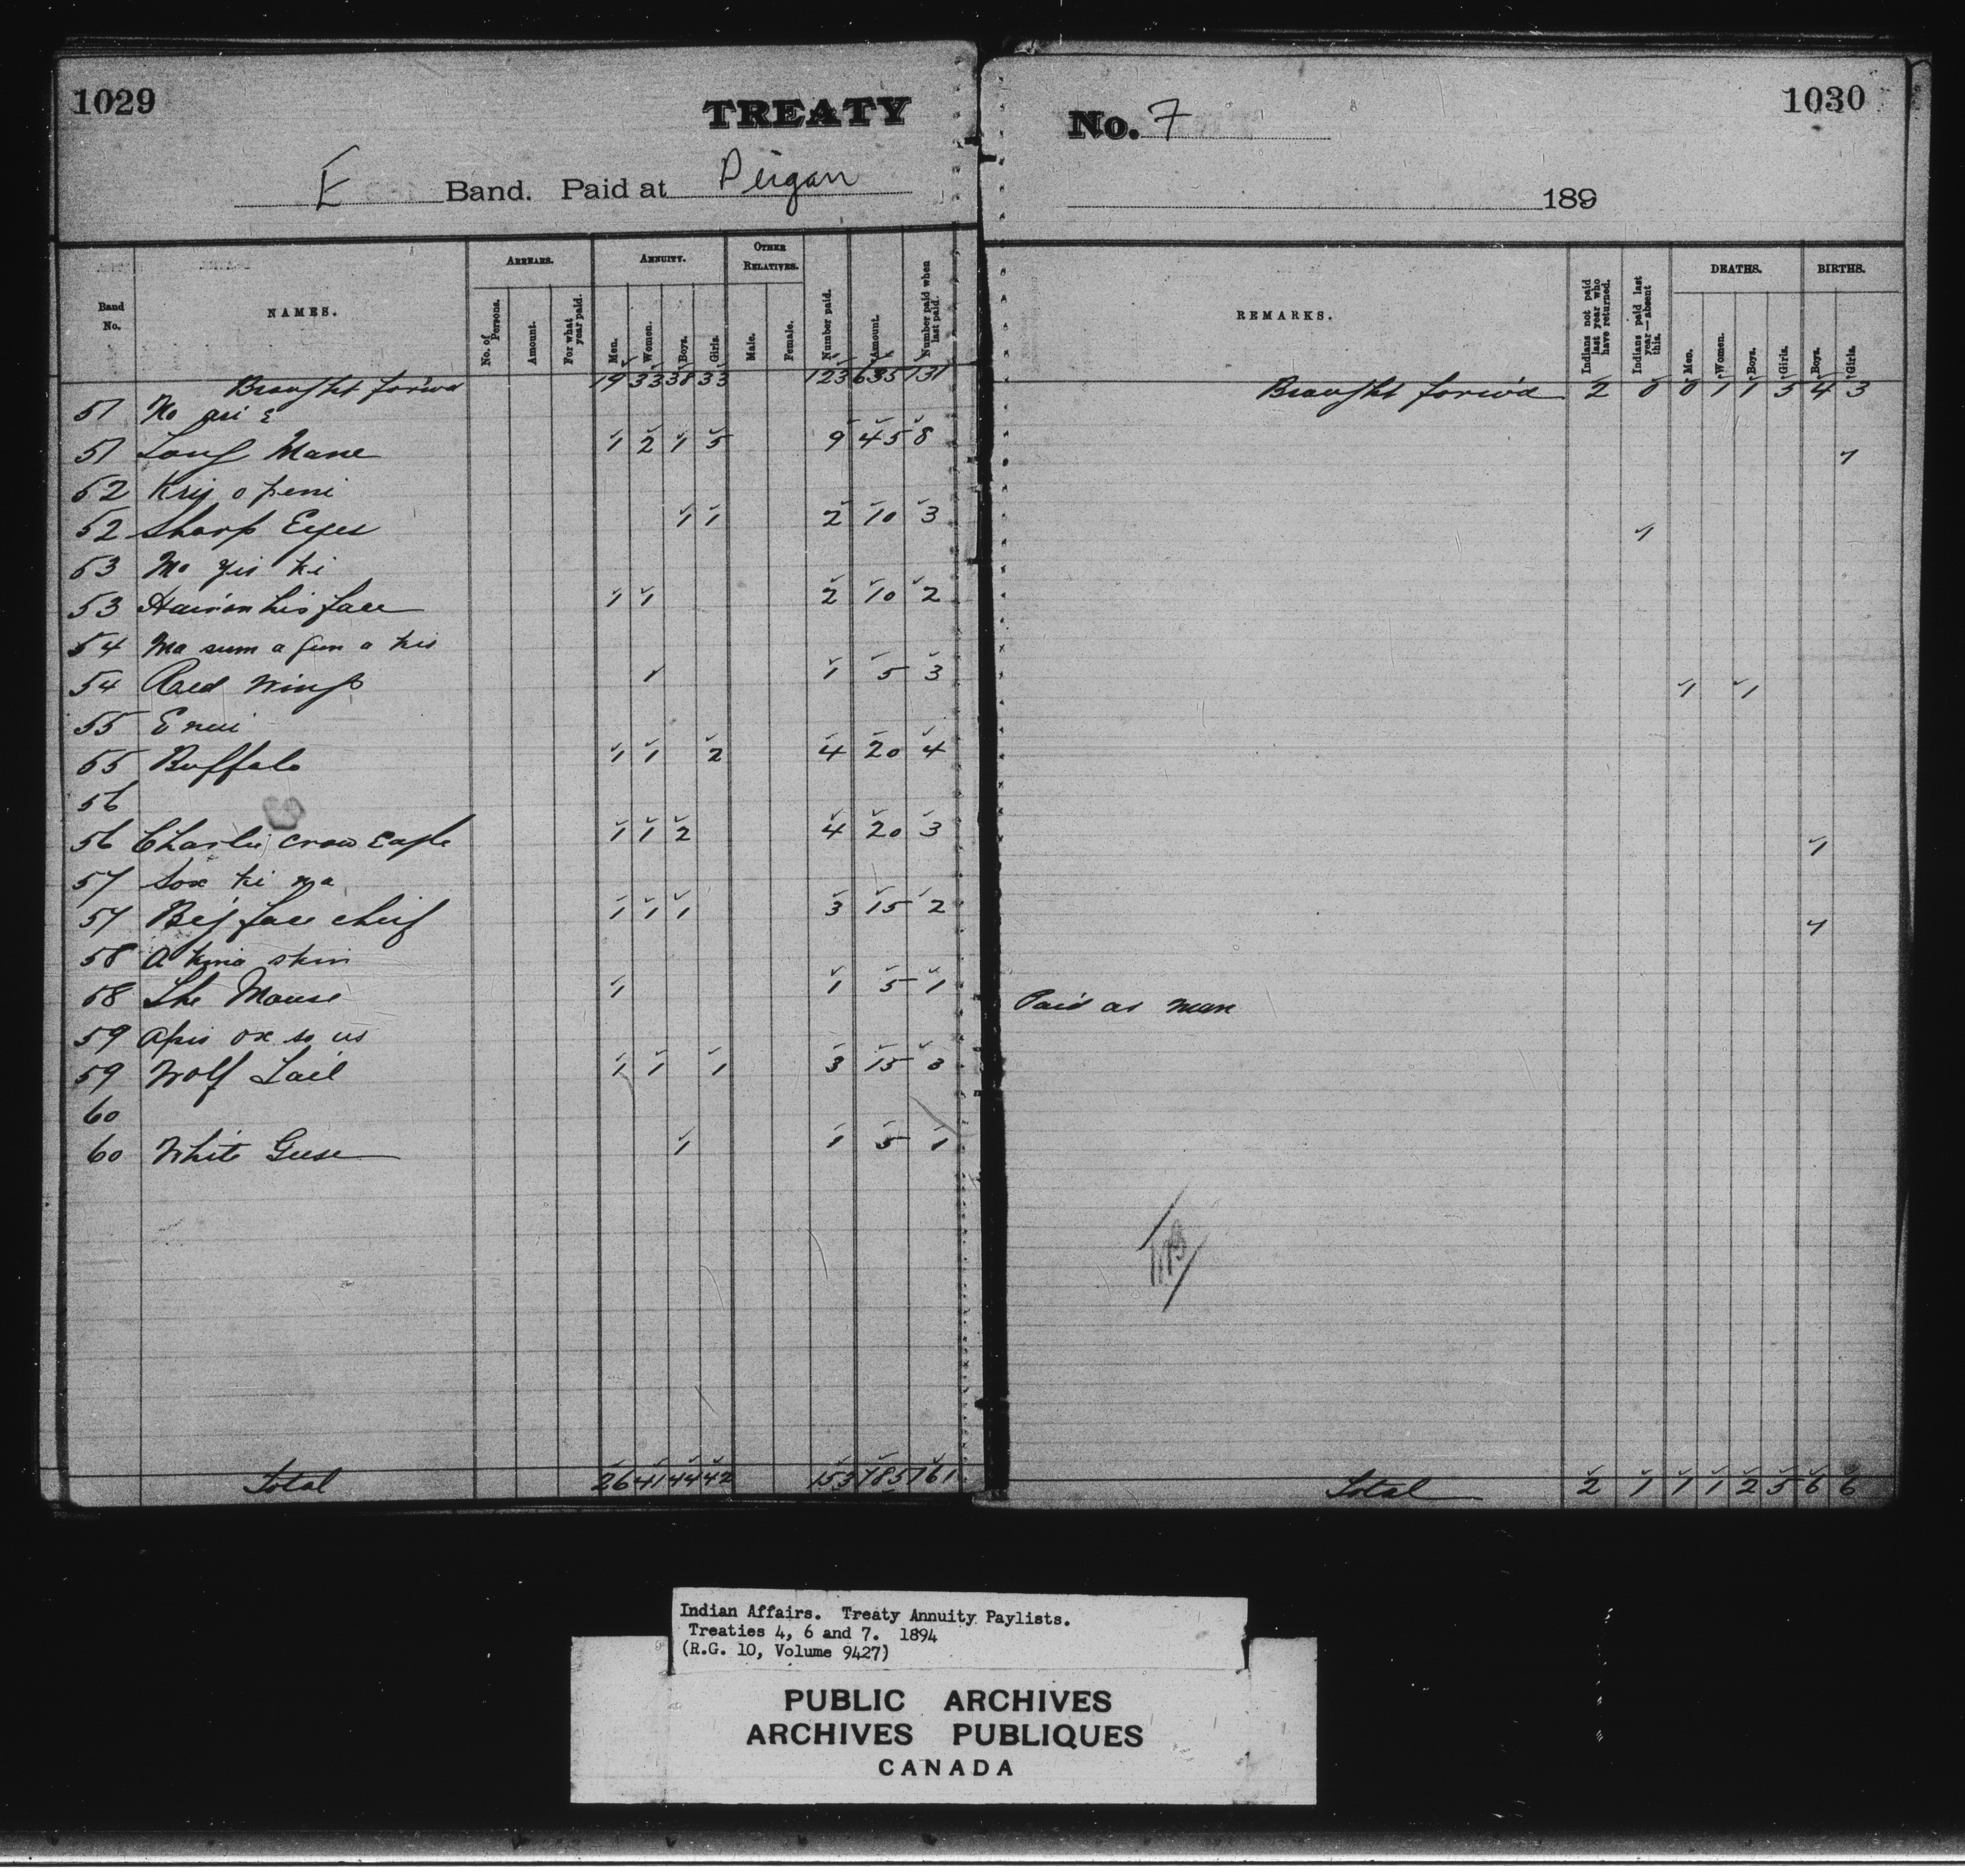 1029
TREATY
E Band. Paid at Peigan
No. 7
1030
189
Band No. NAMES. ARREARS. No. of Persons. Amount. For what year paid. ANNUITY. Men. Women. Boys. Girls. OTHER RELATIVES. Male. Female. Number paid. Amount. Number paid when last paid.
REMARKS. Indians not paid last year who have returned. Indians paid last year—absent this. DEATHS. Men. Women. Boys. Girls. BIRTHS. Boys. Girls.
Brought forw'd 19 33 38 33 123 635 131 Brought forw'd 2 0 0 1 1 5 4 3
51
51 Long Mane 1 2 1 5 9 45 8 1
52
52 Sharp Eyes 1 1 2 10 3 1
53 Ma yis ki
53 Hair on his face 1 1 2 10 2
54
54 Red Wings 1 1 5 3 1 1
55 E nui
55 Buffalo 1 1 2 4 20 4
56
56 Charlie Crow Eagle 1 1 2 4 20 3 1
57 Sox ki na
57 Big face chief 1 1 1 3 15 2 1
58 A kina skin
58 The Mouse 1 1 5 1 Paid as man
59 Apis ox so us
59 Wolf Tail 1 1 1 3 15 3
60
60 White Geese 1 1 5 1
Total 26 41 44 42 153 785 161 Total 2 1 1 1 2 5 6 6
Indian Affairs. Treaty Annuity Paylists.
Treaties 4, 6 and 7. 1894
(R.G. 10, Volume 9427)
PUBLIC ARCHIVES
ARCHIVES PUBLIQUES
CANADA